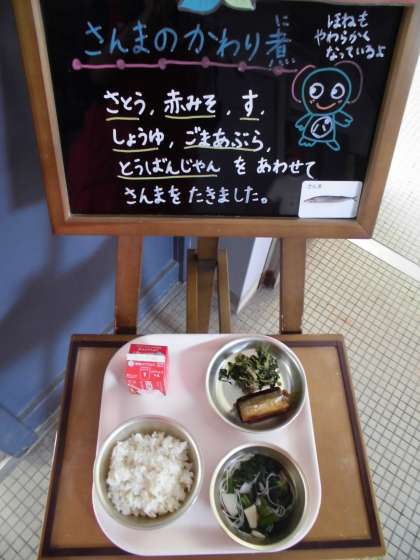 さんまのかわり煮
に
ほねも
やわらかく
なっているよ
さとう、赤みそ、す、
しょうゆ、ごまあぶら、
とうばんじゃん を あわせて
さんまを たきました。
パ
さんま